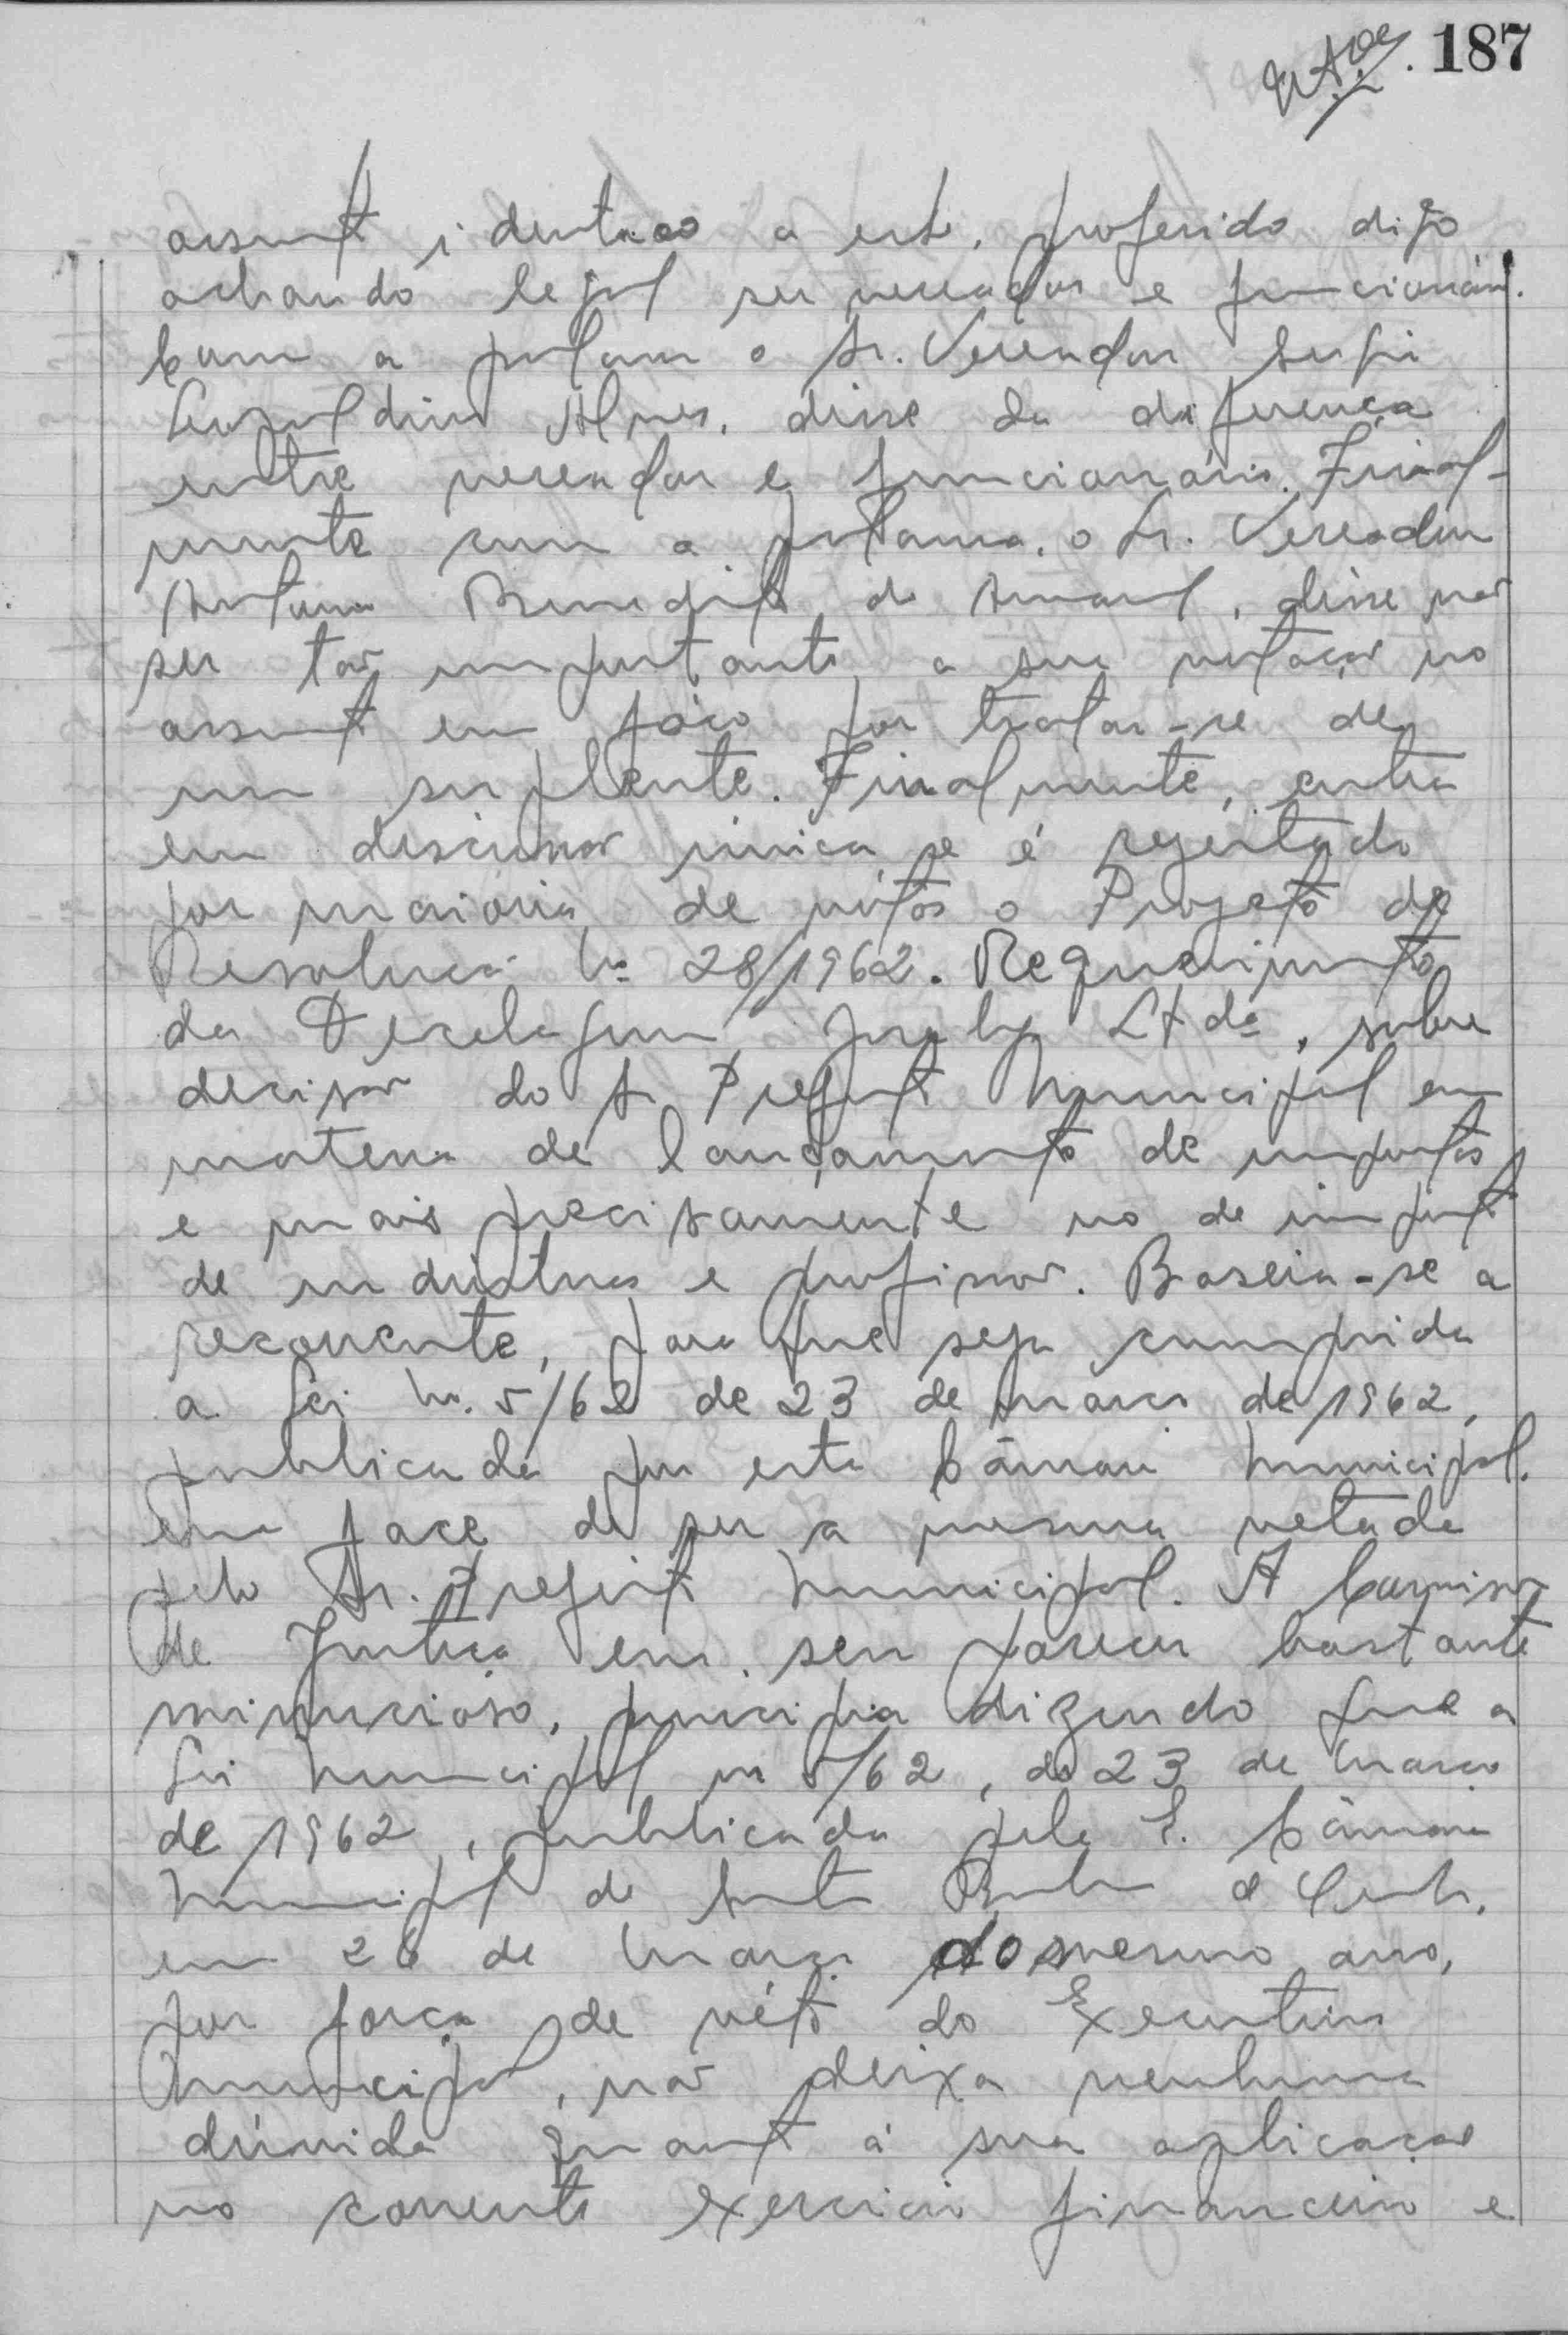 187
assunto identico a este, proferido digo
achando legal ser vereador e funcionário.
Com a palavra o Sr. Vereador Sergio
Leopoldino Alves, disse da diferença
entre vereador e funcionário. Final-
mente com a palavra, o Sr. Vereador
Antonio Benedito do Amaral, disse não
ser tão importante a sua votação no
assunto em fóco por tratar-se de
um suplente. Finalmente, entra
em discussão única e é rejeitado
por maioria de vótos o Projeto de
Resolução Nº 28/1962. Requerimento
da Tecelagem Ltdª, sobre
decisão do Sr. Prefeito Municipal em
materia de lançamento de impostos
e mais precisamente no de imposto
de industrias e profissão. Baseia-se a
recorrente, para que seja cumprida
a Lei Nº. 5/62 de 23 de março de 1962,
publicada por esta Câmara Municipal.
em face de ser a mesma vetada
pelo Sr. Prefeito Municipal. A Comissão
de Justiça em seu parecer bastante
minucioso, principia dizendo que a
Lei Municipal nº 5/62, de 23 de Março
de 1962, publicada pela E. Câmara
Municipal de
em 26 de Março do mesmo ano,
por força de véto do Executivo
Municipal, não deixa nenhuma
dúvida quanto á sua aplicação
no corrente exercicio financeiro e